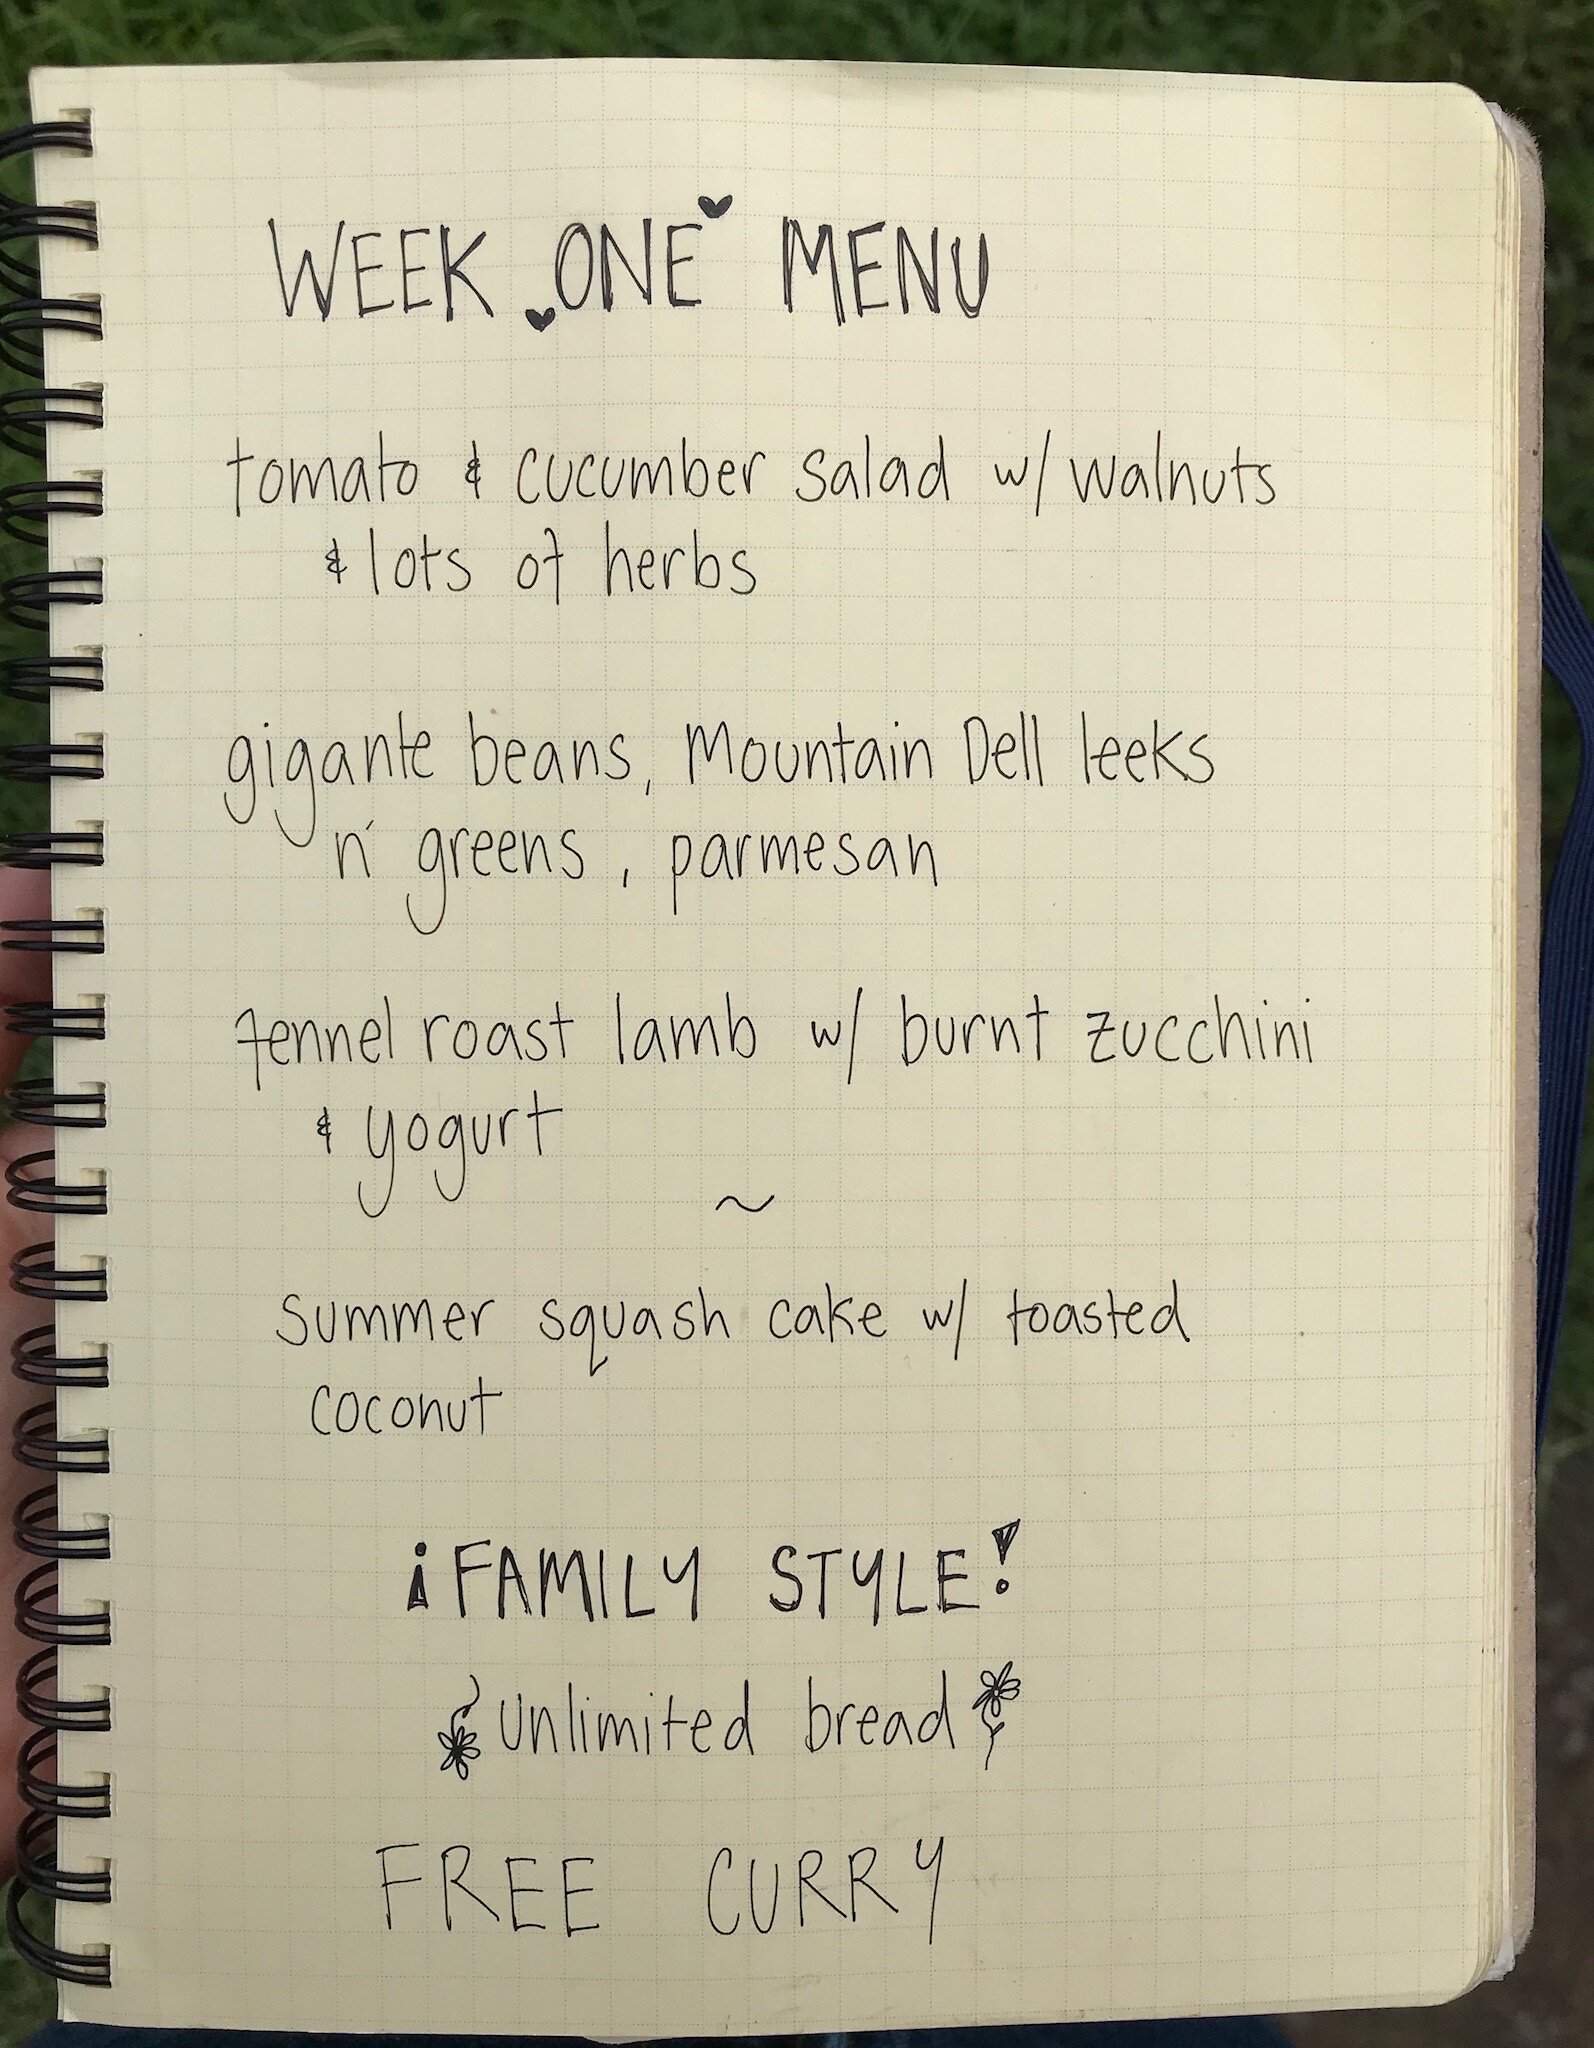 WEEK ONE MENU
tomato & cucumber salad w/ walnuts
& lots of herbs
gigante beans, Mountain Dell leeks
n' greens, parmesan
fennel roast lamb w/ burnt zucchini
& yogurt
~
summer squash cake w/ toasted
coconut
¡FAMILY STYLE!
unlimited bread
FREE CURRY